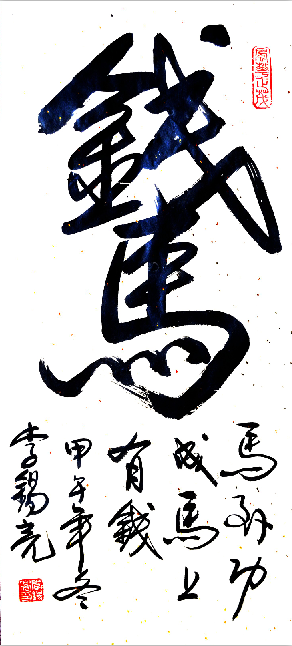 錢
馬
馬到功
成馬上
有錢
甲午年冬
李錫亮